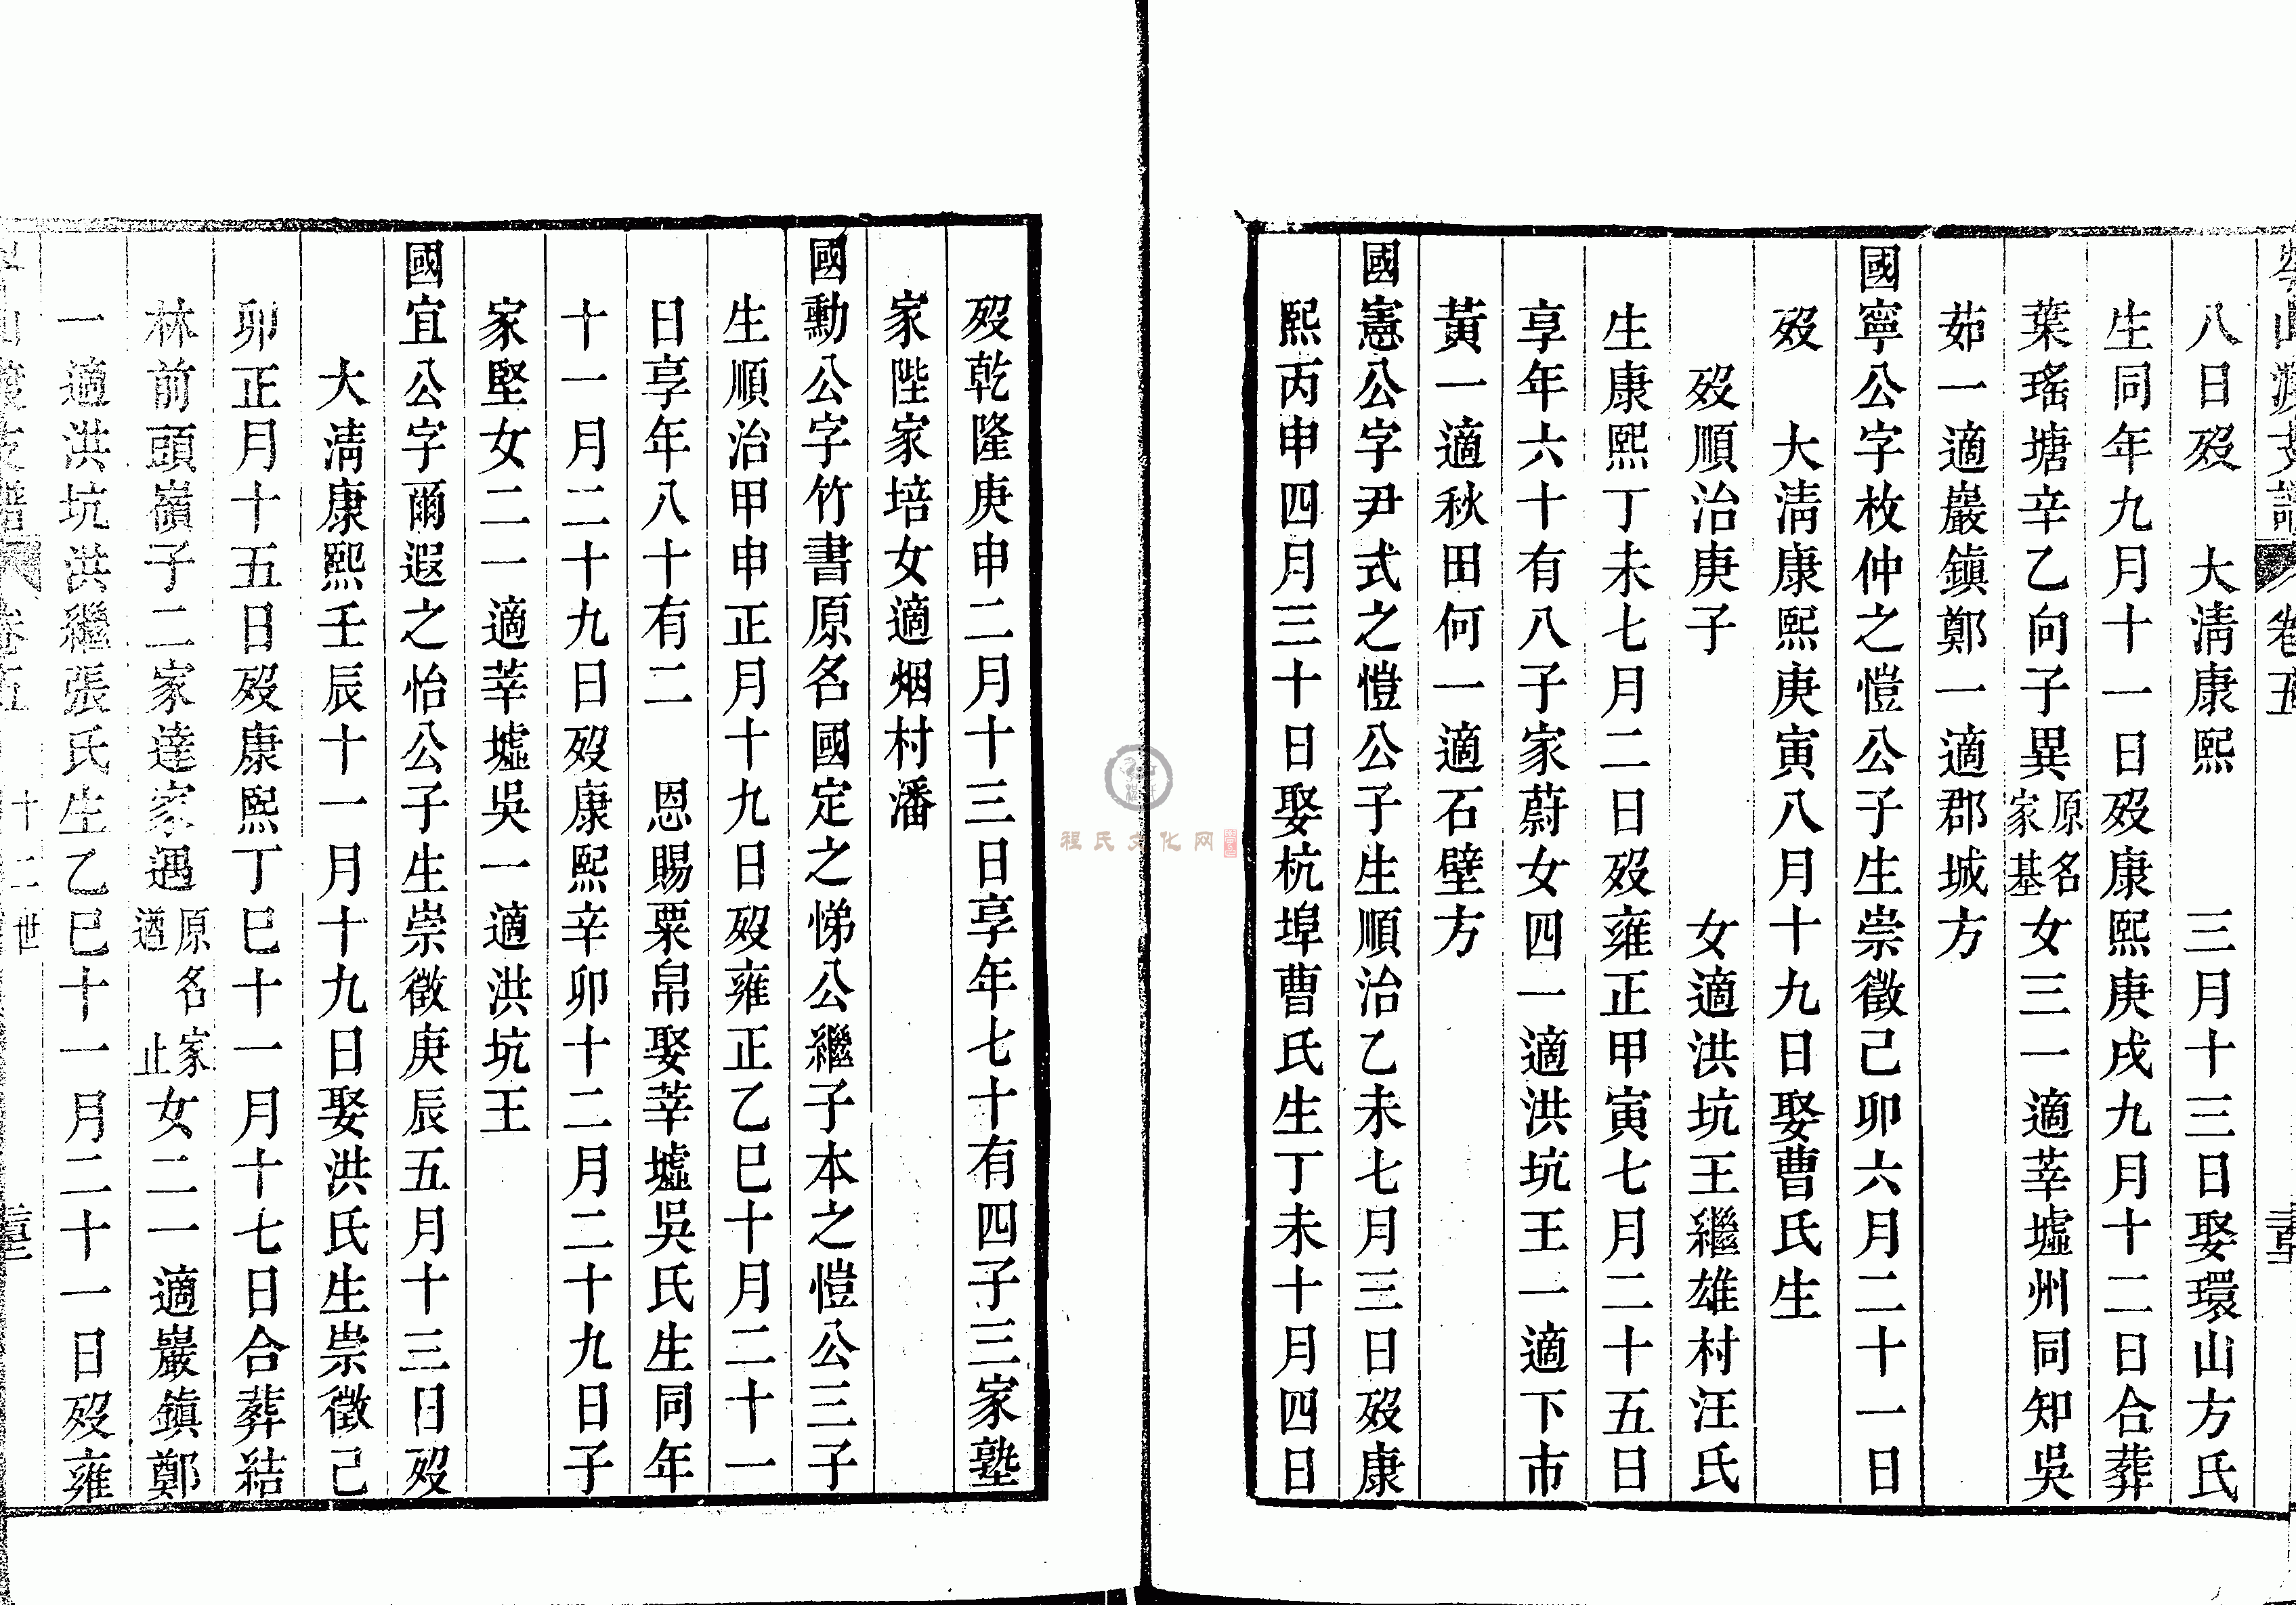 卷五
八日歿　大清康熙　三月十三日娶環山方氏
生同年九月十一日歿康熙庚戌九月十二日合葬
葉瑤塘辛乙向子異原名家基女三一適莘墟州同知吳
茹一適巖鎮鄭一適郡城方
國寧公字枚仲之愷公子生崇徵己卯六月二十一日
歿　大清康熙庚寅八月十九日娶曹氏生
歿順治庚子　女適洪坑王繼雄村汪氏
生康熙丁未七月二日歿雍正甲寅七月二十五日
享年六十有八子家蔚女四一適洪坑王一適下市
黃一適秋田何一適石壁方
國憲公字尹式之愷公子生順治乙未七月三日歿康
熙丙申四月三十日娶杭埠曹氏生丁未十月四日
歿乾隆庚申二月十三日享年七十有四子三家塾
家陛家培女適烟村潘
國勳公字竹書原名國定之悌公繼子本之愷公三子
生順治甲申正月十九日歿雍正乙巳十月二十一
日享年八十有二　恩賜粟帛娶莘墟吳氏生同年
十一月二十九日歿康熙辛卯十二月二十九日子
家堅女二一適莘墟吳一適洪坑王
國宜公字爾遐之怡公子生崇徵庚辰五月十三日歿
大清康熙壬辰十一月十九日娶洪氏生崇徵己
卯正月十五日歿康熙丁巳十一月十七日合葬結
林前頭嶺子二家達家遇原名家遒止女二一適巖鎮鄭
一適洪坑洪繼張氏生乙巳十一月二十一日歿雍
卷五　十二世
程氏文化网